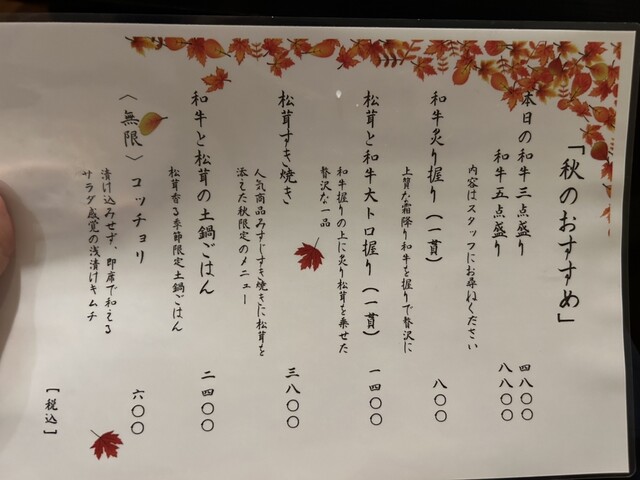 「秋のおすすめ」
本日の和牛三点盛り 四八〇〇
和牛五点盛り 八八〇〇
内容はスタッフにお尋ねください
和牛炙り握り（一貫） 八〇〇
上質な霜降り和牛を握りで贅沢に
松茸と和牛大トロ握り（一貫） 一四〇〇
和牛握りの上に炙り松茸を乗せた
贅沢な一品
松茸すき焼き 三八〇〇
人気商品みすじすき焼きに松茸を
添えた秋限定のメニュー
和牛と松茸の土鍋ごはん 二四〇〇
松茸香る季節限定土鍋ごはん
〈無限〉コッチョリ 六〇〇
漬け込みせず、即席で和える
サラダ感覚の浅漬けキムチ
［税込］